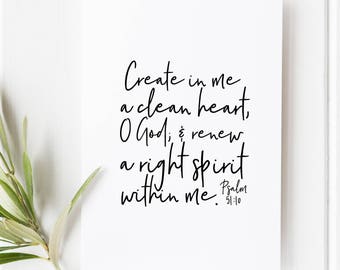 Create in me
a clean heart,
O God; & renew
a right spirit
within me. Psalm
51:10